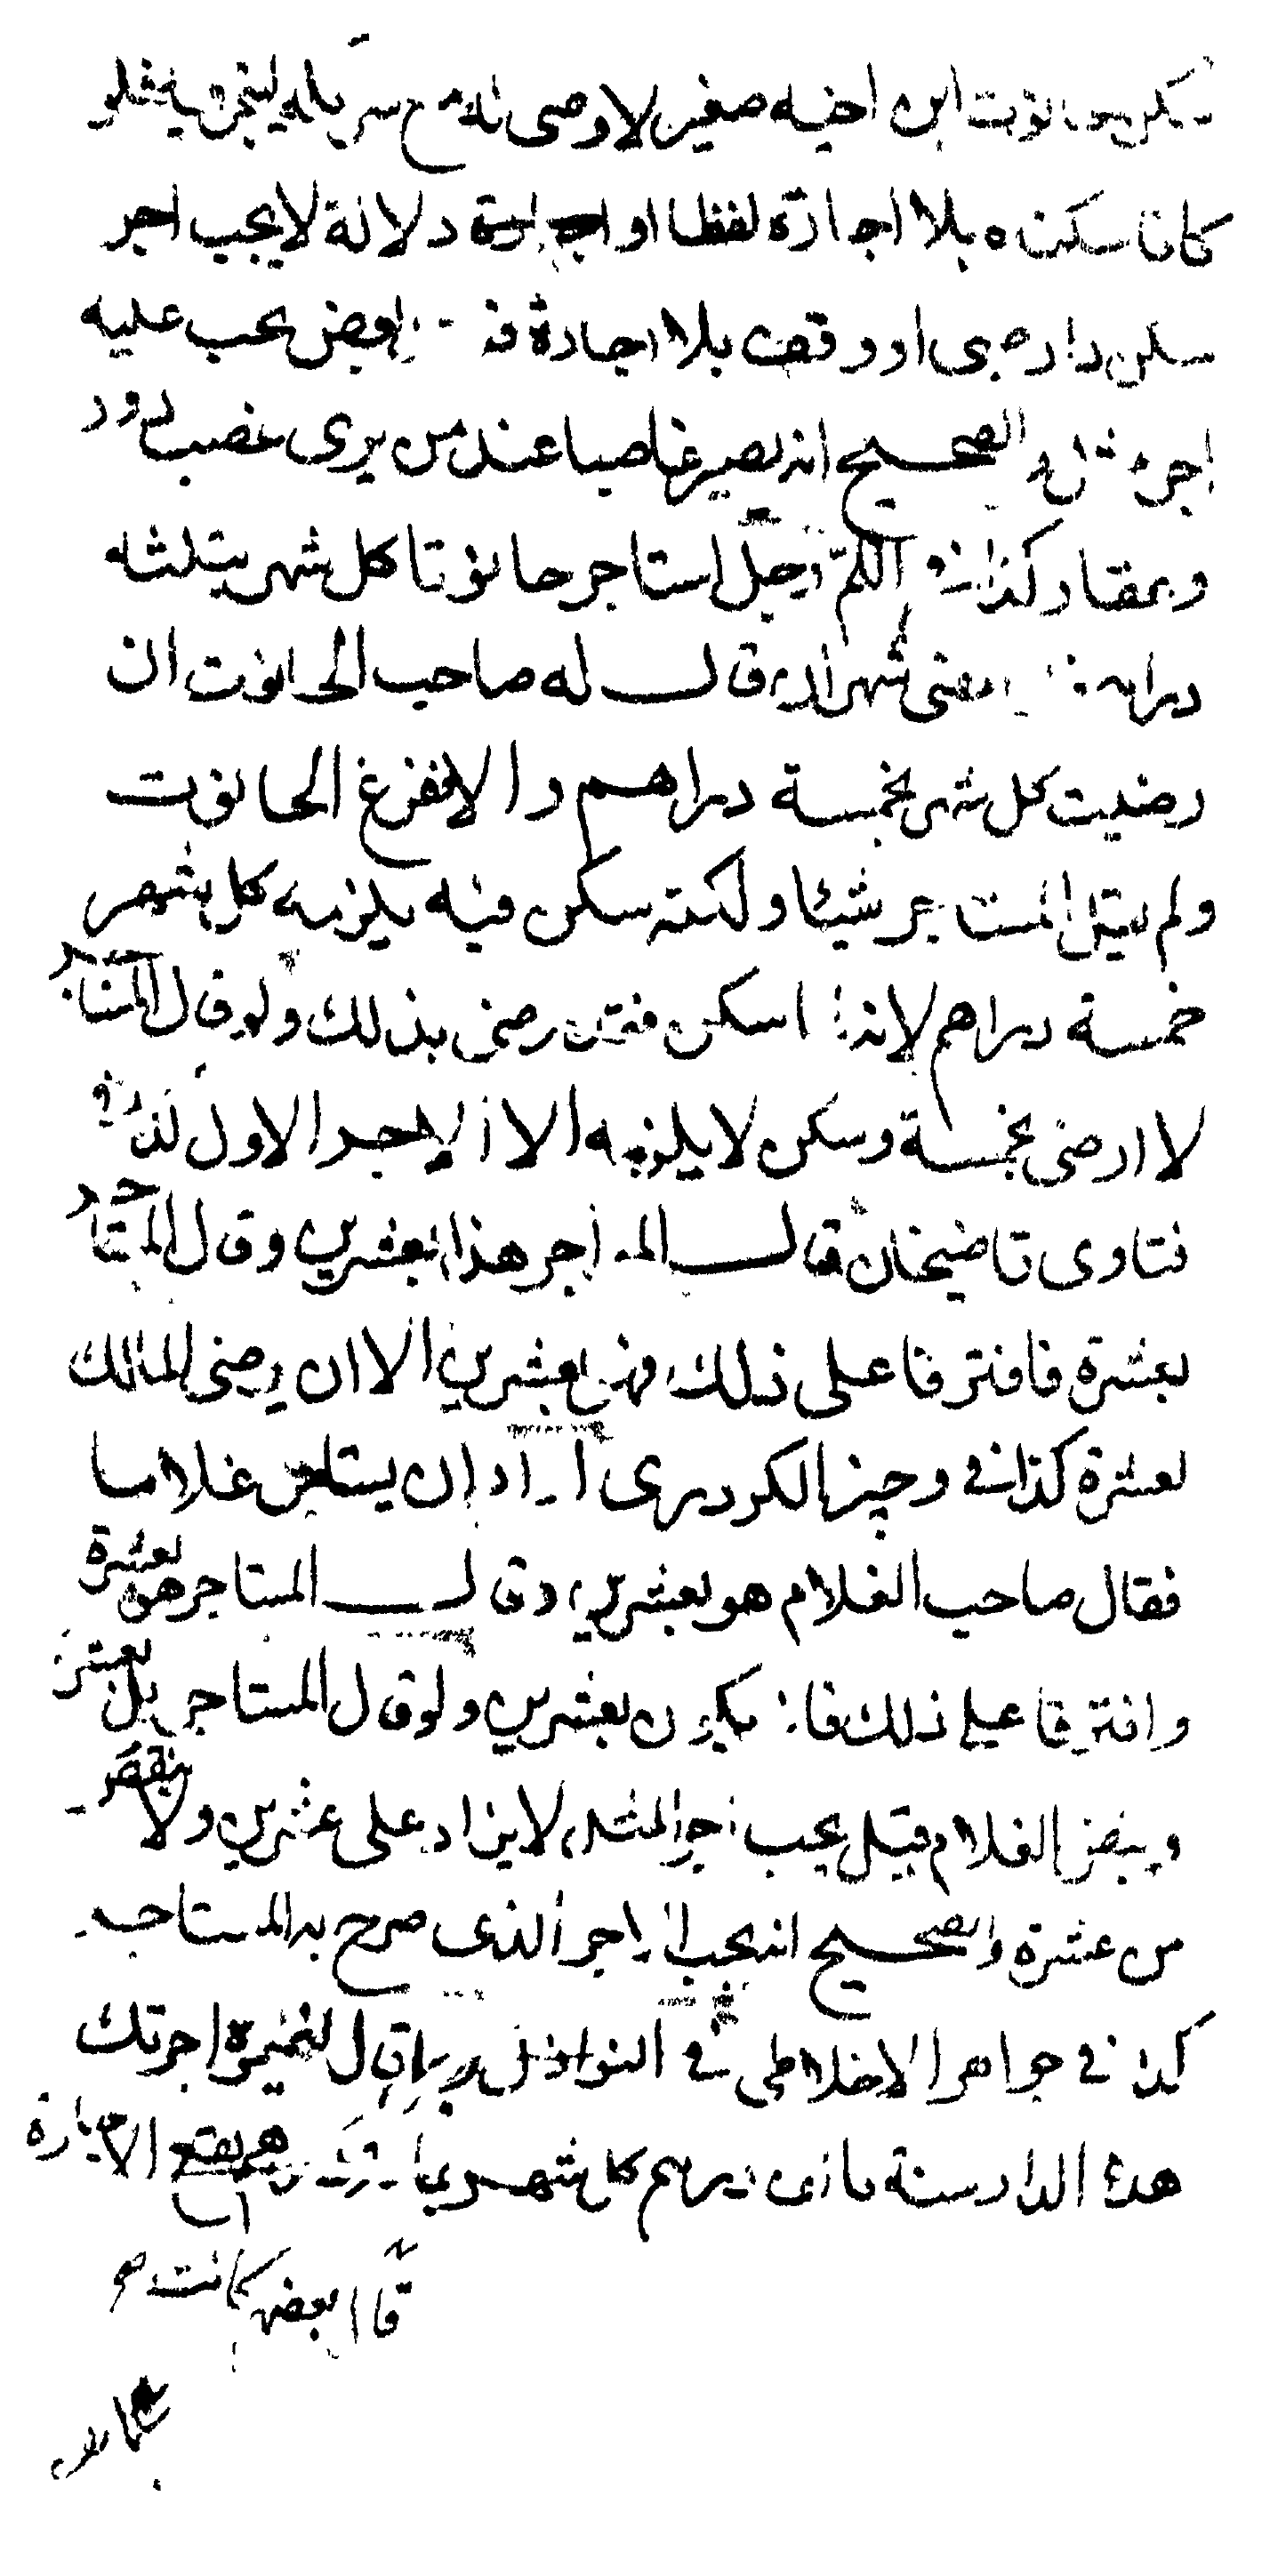 سكن حانوت ابن اخيه صغير لا وصى له مع
كانا سكناه بلا اجازة لفظا او اجازة دلالة لا يجب اجر
سكن دار صبى او وقف بلا اجازة بعض يجب عليه
اجر الصحيح انه يصير غاصبا عند من يرى غصب دور
وعقار كذا رجل استاجر حانوتا كل شهر بثلثه
مضى شهران قال له صاحب الحانوت ان
رضيت كل شهر بخمسة دراهم والا ففرغ الحانوت
ولم يقل المستاجر شيئا ولكنه سكن فيه يلزمه كل شهر
خمسة دراهم لانه اسكن فقد رضى بذلك ولو قال المستاجر
لا ارضى بخمسة وسكن لا يلزمه الا الاجر الاول كذا فى
فتاوى قاضيخان قال اجر هذا بعشرين وقال المستاجر
بعشرة فافترقا على ذلك فهى بعشرين الا ان يرضى المالك
بعشرة كذا فى وجيز الكردرى اراد ان يستاجر غلاما
فقال صاحب الغلام هو بعشرين وقال المستاجر هو بعشرة
وافترقا على ذلك يكون بعشرين ولو قال المستاجر بل بعشرة
الغلام قيل يجب اجر المثل لا يزاد على عشرين ولا ينقص
من عشرة والصحيح انه يجب الاجر الذى صرح به المستاجر
كذا فى جواهر الاخلاطى فى النوازل قال لغيره اجرتك
هذه الدار سنة كل شهر هل يقع الاجارة
بعض كانت